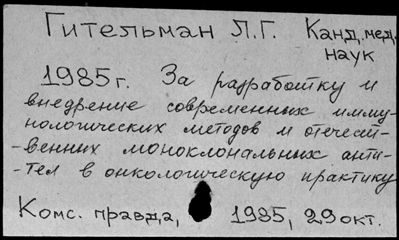 Гительман Л.Г. Канд. мед.
наук
1985 г. За разработку и
внедрение современных имму-
нологических методов и отечест-
-венних моноклональных анти-
-тел в онкологическую практику
Комс. правда, 1985, 29 окт.